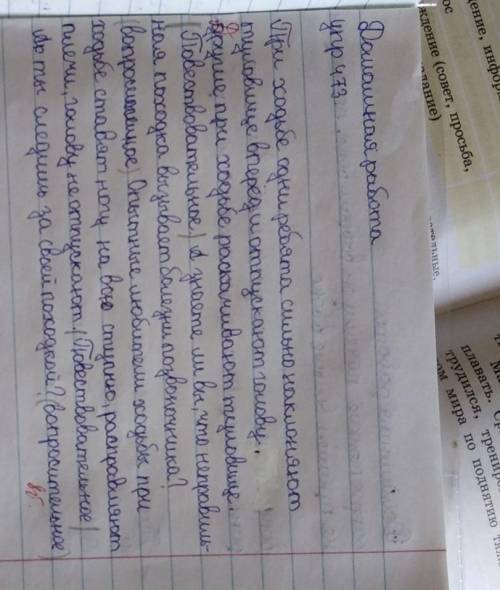 Домашняя работа
упр 473.
При ходьбе одни ребята сильно наклоняют
туловище вперед и отпускают голову.
Другие при ходьбе раскачивают туловище.
(Повествовательное) А знаете ли вы, что неправиль-
ная походка вызывает болезни позвоночника?
(вопросительное) Опытные любители ходьбы при
ходьбе ставят ногу на всю ступню, расправляют
плечи, голову не отпускают. (Повествовательное)
А ты следишь за своей походкой? (Вопросительное)
ждение (совет, просьба,
елание)
плавать.
трудился, трениро
ом мира по поднятию тяже